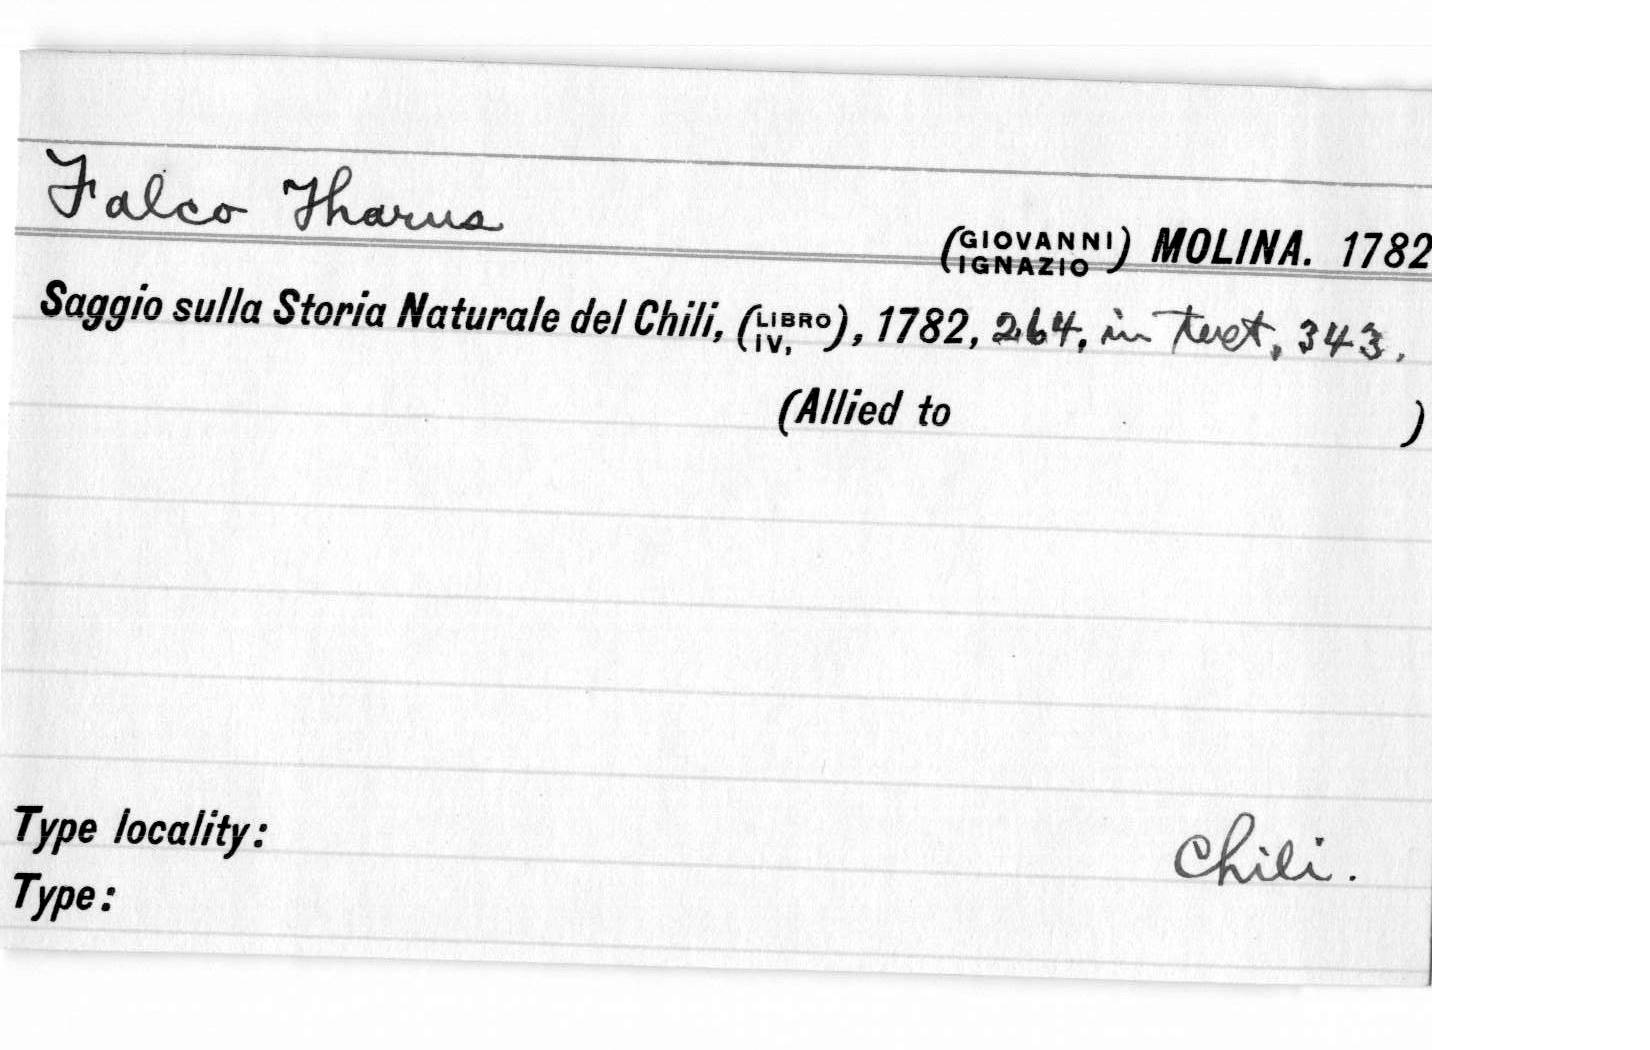 Falco Tharus
(GIOVANNI IGNAZIO) MOLINA. 1782
Saggio sulla Storia Naturale del Chili, (LIBRO IV,), 1782, 264, in text, 343.
(Allied to )
Type locality: Chili.
Type: